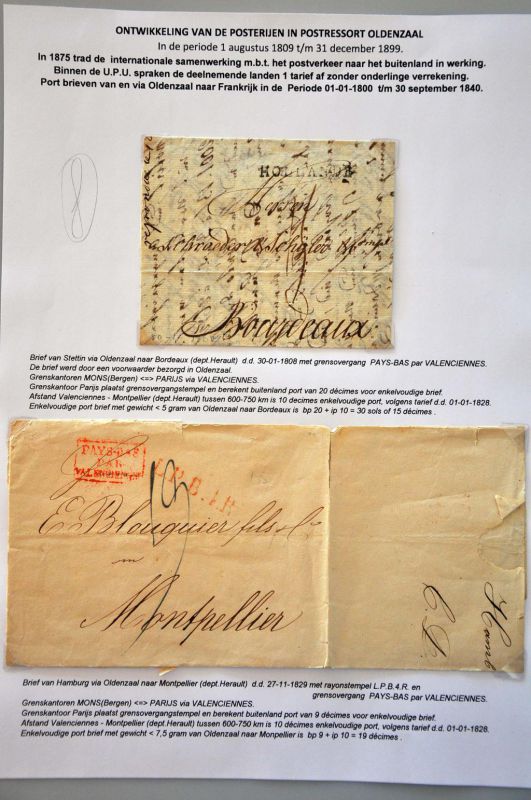 ONTWIKKELING VAN DE POSTERIJEN IN POSTRESSORT OLDENZAAL
In de periode 1 augustus 1809 t/m 31 december 1899.
In 1875 trad de internationale samenwerking m.b.t. het postverkeer naar het buitenland in werking.
Binnen de U.P.U. spraken de deelnemende landen 1 tarief af zonder onderlinge verrekening.
Port brieven van en via Oldenzaal naar Frankrijk in de Periode 01-01-1800 t/m 30 september 1840.
8
HOLLANDE
Schroeder & Schÿler & Comp
Bourdeaux
Brief van Stettin via Oldenzaal naar Bordeaux (dept.Herault) d.d. 30-01-1808 met grensovergang PAYS-BAS par VALENCIENNES.
De brief werd door een voorwaarder bezorgd in Oldenzaal.
Grenskantoren MONS(Bergen) <=> PARIJS via VALENCIENNES.
Grenskantoor Parijs plaatst grensovergangstempel en berekent buitenland port van 20 décimes voor enkelvoudige brief.
Afstand Valenciennes - Montpellier (dept.Herault) tussen 600-750 km is 10 decimes enkelvoudig port, volgens tarief d.d. 01-01-1828.
Enkelvoudig port brief met gewicht < 5 gram van Oldenzaal naar Bordeaux is bp 20 + ip 10 = 30 sols of 15 décimes .
PAYS-BAS
PAR
VALENCIENNES
L.P.B.4.R
19
E. Blouquier fils & Co
Montpellier
Hamb
Brief van Hamburg via Oldenzaal naar Montpellier (dept.Herault) d.d. 27-11-1829 met rayonstempel L.P.B.4.R. en
grensovergang PAYS-BAS par VALENCIENNES.
Grenskantoren MONS(Bergen) <=> PARIJS via VALENCIENNES.
Grenskantoor Parijs plaatst grensovergangstempel en berekent buitenland port van 9 décimes voor enkelvoudige brief.
Afstand Valenciennes - Montpellier (dept.Herault) tussen 600-750 km is 10 décimes enkelvoudig port, volgens tarief d.d. 01-01-1828.
Enkelvoudig port brief met gewicht < 7,5 gram van Oldenzaal naar Monpellier is bp 9 + ip 10 = 19 décimes .